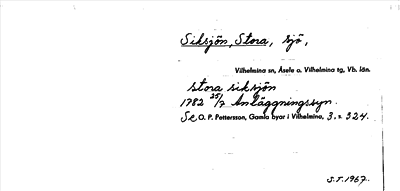 Siksjön, Stora, sjö,
Vilhelmina sn, Åsele o. Vilhelmina tg, Vb. län.
stora siksjön
1782 25/7 Anläggningssyn.
Se O. P. Pettersson, Gamla byar i Vilhelmina, 3. s. 324.
S.T. 1967.